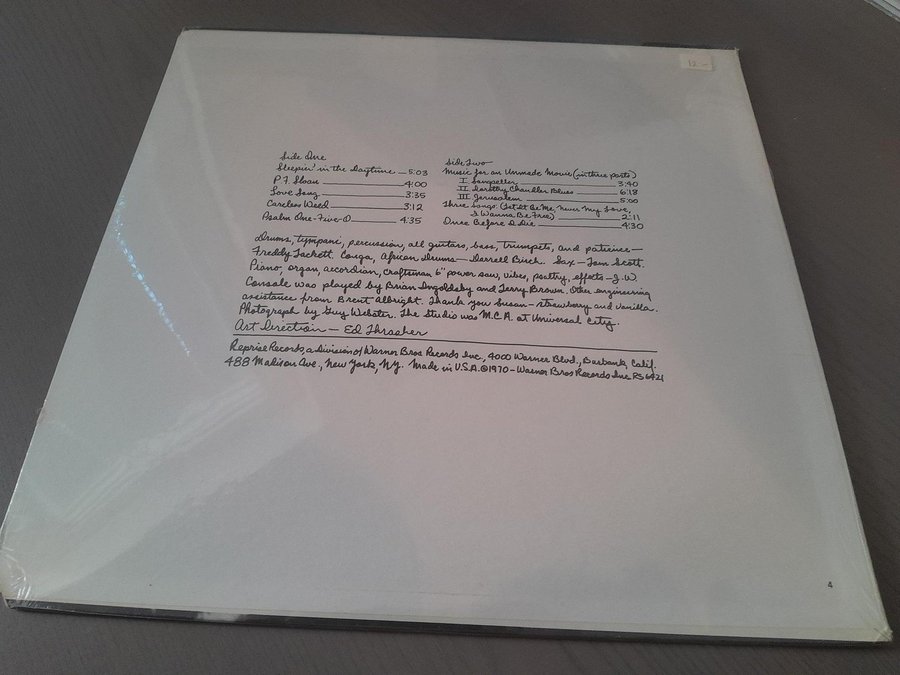 12.-
Side One
Sleepin' in the Daytime — 5:03
P.F. Sloan — 4:00
Love Song — 3:35
Careless Weed — 3:12
Psalm One-Five-O — 4:35
Side Two
Music for an Unmade Movie (in three parts)
I Songseller — 3:40
II Dorothy Chandler Blues — 6:18
III Jerusalem — 5:00
Three Songs (Let It Be Me, Never My Love,
I Wanna Be Free) — 2:11
Once Before I Die — 4:30
Drums, tympani, percussion, all guitars, bass, trumpets, and patience —
Freddy Tackett. Conga, African Drums — Darrell Birch. Sax — Tom Scott.
Piano, organ, accordian, craftsman 6" power saw, vibes, poetry, effects — J.W.
Console was played by Brian Ingoldsby and Jerry Brown. Other engineering
assistance from Brent Albright. Thank you Susan — strawberry and vanilla.
Photograph by Guy Webster. The studio was M.C.A. at Universal City.
Art Direction — Ed Thrasher
Reprise Records, a division of Warner Bros Records Inc., 4000 Warner Blvd., Burbank, Calif.
488 Madison Ave., New York, N.Y. Made in U.S.A. ©1970 — Warner Bros Records Inc. RS 6421
4